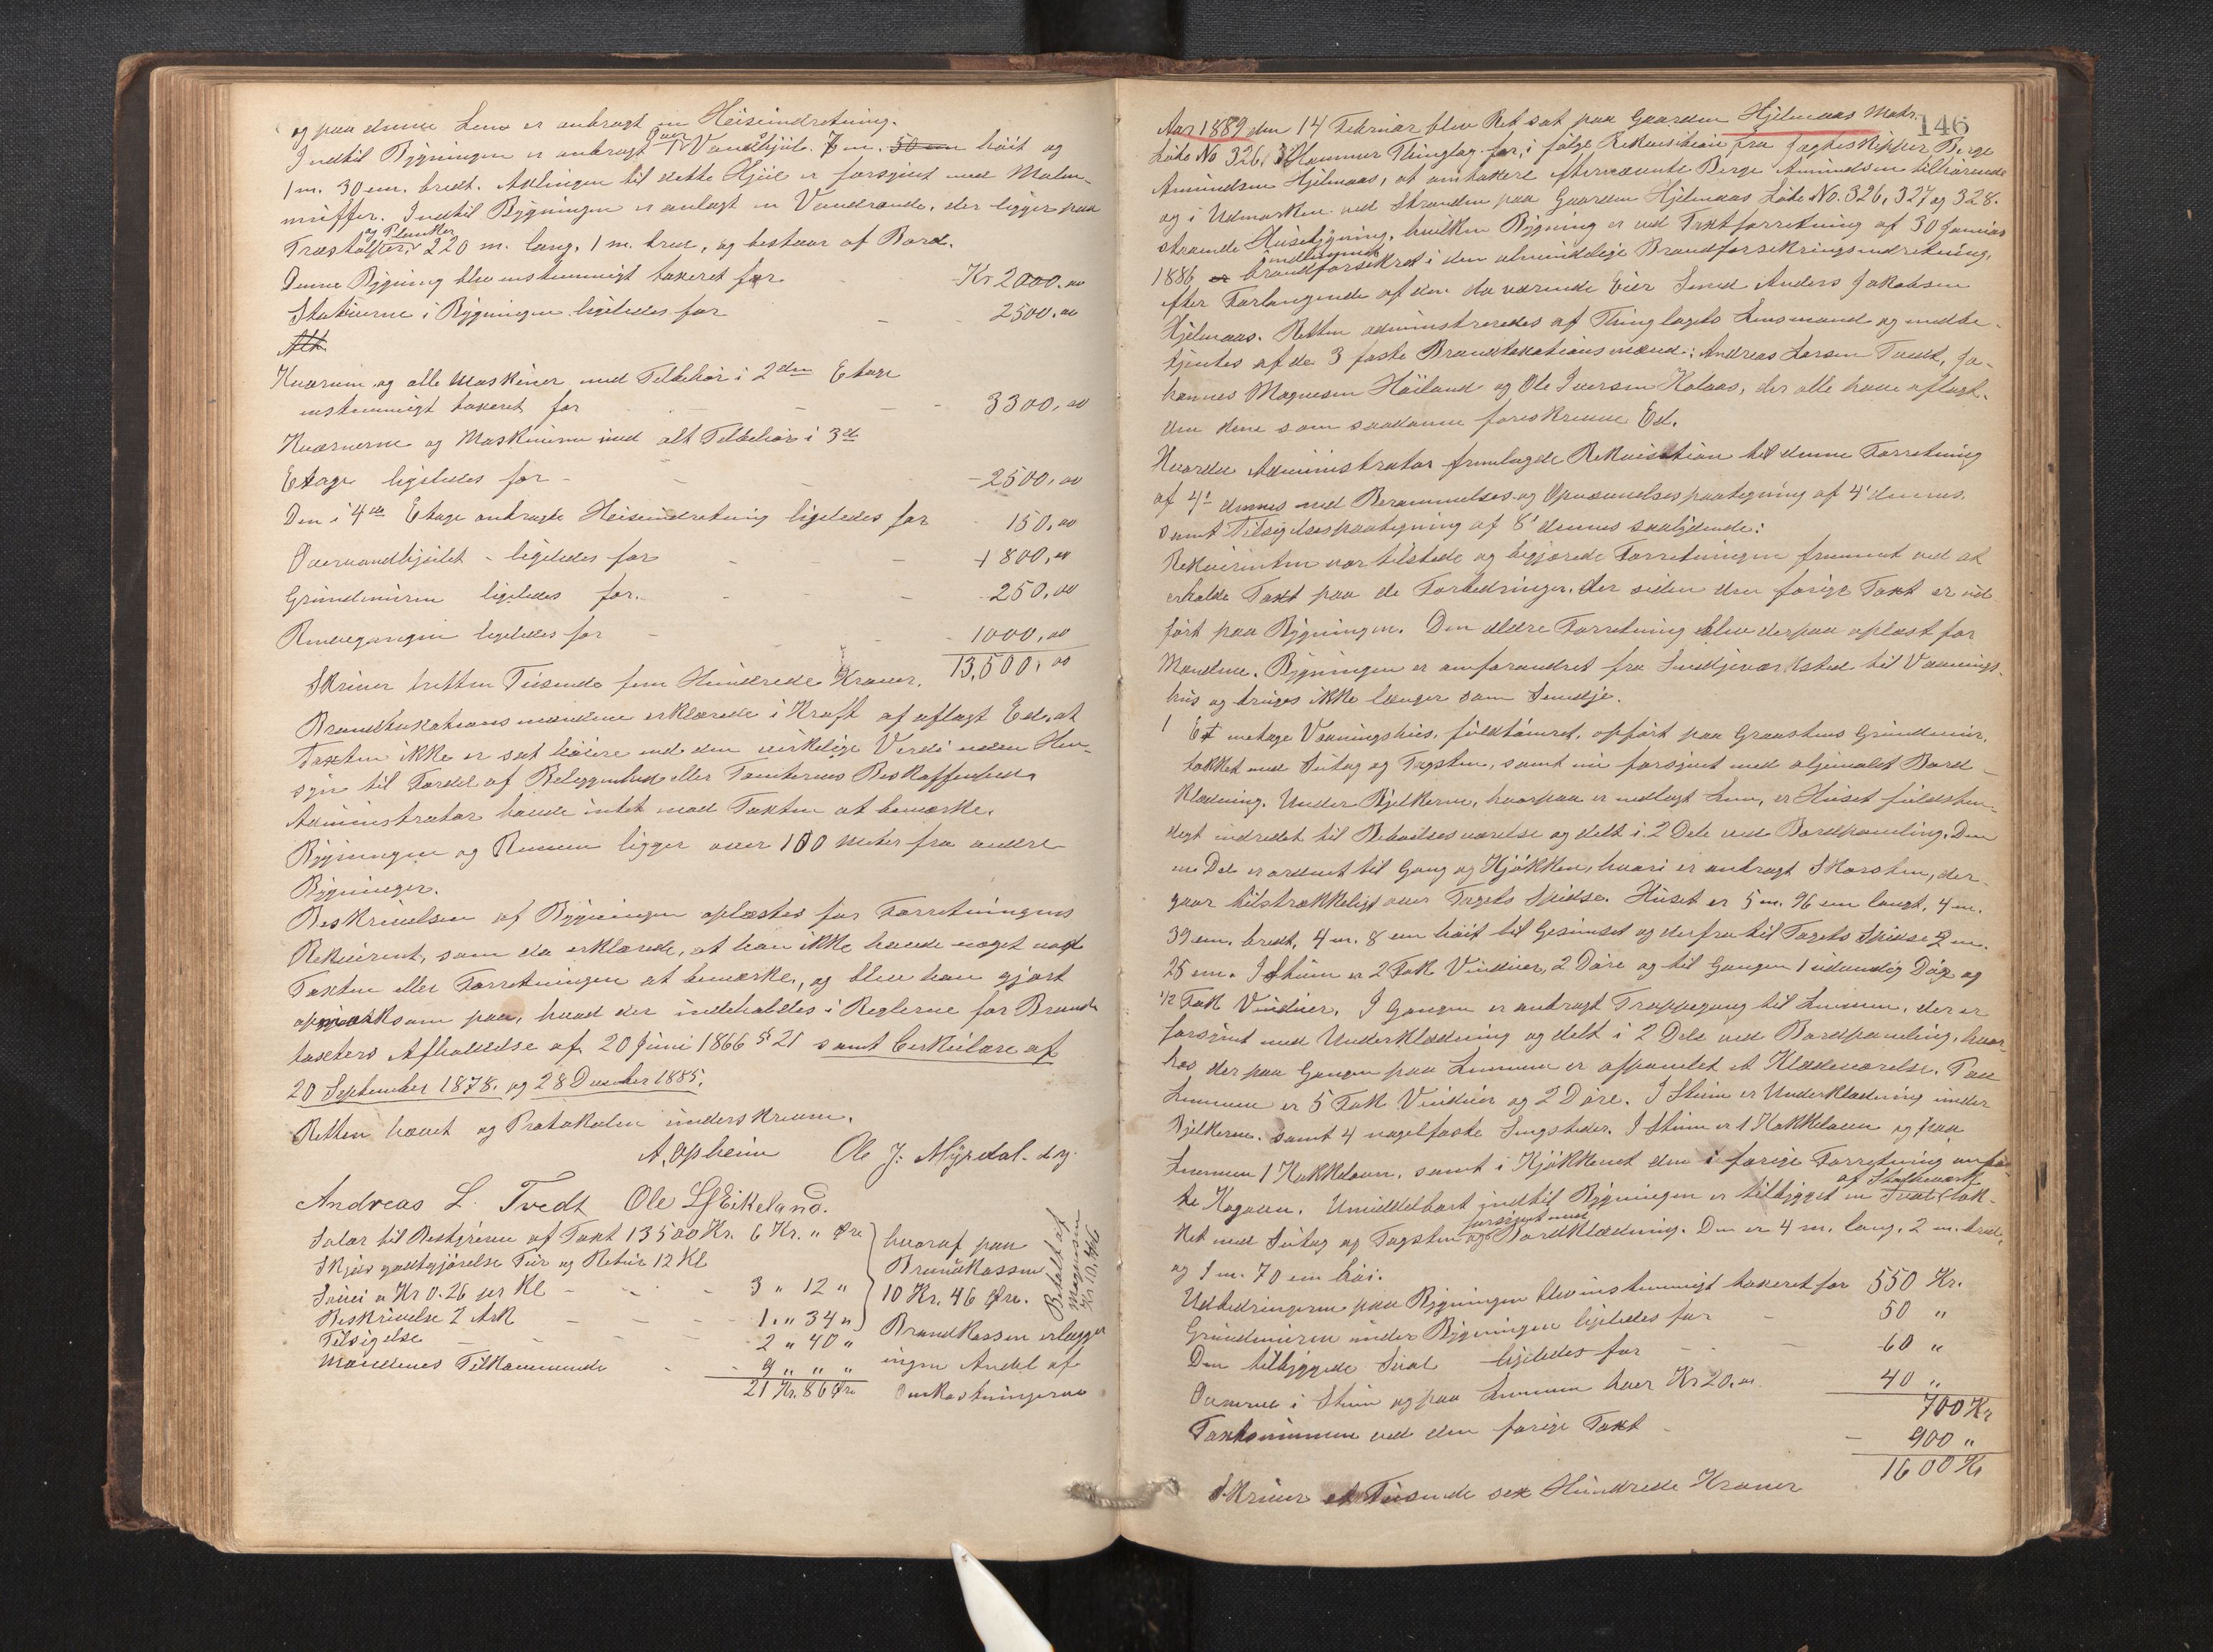 og paa denne Lem er anbragt en Heiseindretning.
Indtil Bygningen er anbragt 1 Over Vandhjul. 7 m. 50 cm høit og
1 m. 30 cm. bredt. Axlingen til dette Hjul er forsynet med Malm-
muffer. Indtil Bygningen er anlagt en Vandrænde, der ligger paa
Træstolper, 220 m. lang, 1 m. bred, og bestaar af Bord
og Planker.
Denne Bygning blev enstemmigt taxeret for - Kr 2000,00
Stativerne i Bygningen ligeledes for - - 2500,00
Alt
Kværnen og alle Maskiner med Tilbehør i 2den Etage
enstemmigt taxeret for - - - 3300,00
Kværnerne og Maskinerne med alt Tilbehør i 3de
Etage ligeledes for - - - 2500,00
Den i 4de Etage anbragte Heiseindretning ligeledes for 150,00
Overvandhjulet - ligeledes for - - 1800,00
Grundmuren ligeledes for - - 250,00
Rendegangen ligeledes for - - 1000,00
13,500,00
Skriver tretten Tusende fem Hundrede Kroner.
Brandtaxationsmændene erklærede i Kraft af aflagt Ed, at
Taxten ikke er sat høiere end den virkelige Værdi uden Hen-
syn til Fordel af Beliggenhed eller Tomternes Beskaffenhed.
Administrator havde intet mod Taxten at bemærke.
Bygningen og Renden ligger over 100 meter fra andre
Bygninger.
Beskrivelsen af Bygningen oplæstes for Forretningens
Rekvirent, som da erklærede, at han ikke havde noget mod
Taxten eller Forretningen at bemærke, og blev han gjort
opmærksom paa, hvad der indeholdes i Reglerne for Brand-
taxters Afholdelse af 20 Juni 1866 § 21 samt Cirkulære af
20 September 1878. og 28 December 1885.
Retten hævet og Protokolen underskreven.
A, Opheim Ole J: Myrdal. d.y.
Andreas L. Tvedt Ole L Eikeland.
Salær til Bestyreren af Taxt 13500 Kr. 6 Kr. " Øre
Skydsgodtgjørelse Tur og Retur 12 Kl
Svei a Kr 0.26 per Kl - - - 3 " 12 "
Beskrivelse 2 Ark - - - 1 " 34 "
Tilsigelse - - - 2 " 40 "
Mændenes Tilkommende - - 9 " " "
21 Kr. 86 Øre
hvoraf paa
Brandkassen
10 Kr. 46 Øre.
Brandkassen erlægger
ingen Andel af
Omkostningerne
Betalt af
Magnesen
Kr 10,46
146
Aar 1889 den 14 Februar blev Ret sat paa Gaarden Hjelmaas Matr.
Løbe No 326, i Hammer Thinglag for, i følge Rekvisition fra Jagteskipper Børge
Amundsen Hjelmaas, at omtaxere efternævnte Børge Amundsen tilhørende
og i Udmarken ved Stranden paa Gaarden Hjelmaas Løbe No. 326, 327 og 328.
staaende Husebygning, hvilken Bygning er ved Taxtforretning af 30 Januar
1886 indtegnet brandforsikret i den almindelige Brandforsikringsindretning,
efter Forlangende af den da værende Eier Smed Anders Jakobsen
Hjelmaas. Retten administreredes af Thinglagets Lensmand og medbe-
tjentes af de 3 faste Brandtaxationsmænd: Andreas Larsen Tvedt, Jo-
hannes Magnesen Høiland og Ole Iversen Kolaas, der alle have aflagt
den dem som saadanne foreskrevne Ed.
Hvorda Administrator fremlagde Rekvisition til denne Forretning
af 4de dennes med Berammelses og Opnævnelsespaategning af 4' dennes.
samt Tilsigelsespaategning af 8' dennes saalydende:
Rekvirenten var tilstede og begjærede Forretningen fremmet ved at
erholde Taxt paa de Forbedringer, der siden den forige Taxt er ud-
ført paa Bygningen. Den ældre Forretning blev derpaa oplæst for
Mændene. Bygningen er omforandret fra Smedjeværksted til Vaanings-
hus og bruges ikke længer som Smedje.
1 Et en etage Vaaningshus, fuldtømret, opført paa Graastens Grundmur,
tækket med Sutag og Tagsten, samt nu forsynet med oljemalet Bord-
klædning. Under Bjelkerne, hvorpaa er nedlagt Lem, er Huset fuldsten-
digt indredet til Beboelsesværelse og delt i 2 Dele ved Bordpaneling. Den
ene Del er ordnet til Gang og Kjøkken, hvori er anbragt Skorsten, der
gaar tilstrækkeligt over Tagets Spidse. Huset er 5 m. 96 cm langt, 4 m.
39 cm. bredt, 4 m. 8 cm høit til Gesimset og derfra til Tagets Spidse 2 m.
25 cm. I Stuen er 2 Fak Vinduer, 2 Døre og til Gangen 1 udvendig Dør og
1/2 Fak Vinduer. I Gangen er anbragt Trappegang til Lemmen, der er
forsynet med Underklædning og delt i 2 Dele ved Bordpaneling, hvor-
hos der paa Gangen paa Lemmen er afpanelet et Klædeværelse. Paa
Lemmen er 5 Fak Vinduer og 2 Døre. I Stuen er Underklædning under
Bjelkerne, samt 4 nagelfaste Sengsteder. I Stuen er 1 Kakkelovn og paa
Lemmen 1 Kakkelovn, samt i Kjøkkenet den i forige Forretning anfø-
te Kogovn. Umiddelbart indtil Bygningen er tilbygget en Sval af Stolpeværk tæk-
ket med Sutag og Tagsten og forsynet med Bordklædning. Den er 4 m. lang, 2 m. bred,
og 1 m. 70 cm høi.
Udbedringerne paa Bygningen blev enstemmigt taxeret for 550 Kr.
Grundmuren under Bygningen ligeledes for - 50 "
Den tilbyggede Sval ligeledes for - - 60 "
Ovnene i Stuen og paa Lemmen hver Kr 20,00 40 "
700 Kr
Taxtsummen ved den forige Taxt - - 900 "
1600 Kr
Skriver et Tusende sex Hundrede Kroner